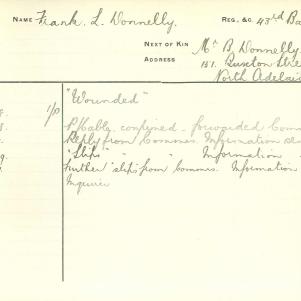 NAME Frank. L. Donnelly. REG. &C 43rd Ba
NEXT OF KIN Mr B. Donnelly
ADDRESS 151. Buxton Stre
North Adelai
1/P "Wounded"
P/Cable confined. forwarded Comm
Reply from Commrs. Information
"Slips" " " Information
Further "slips" from Commrs. Information
Inquirer